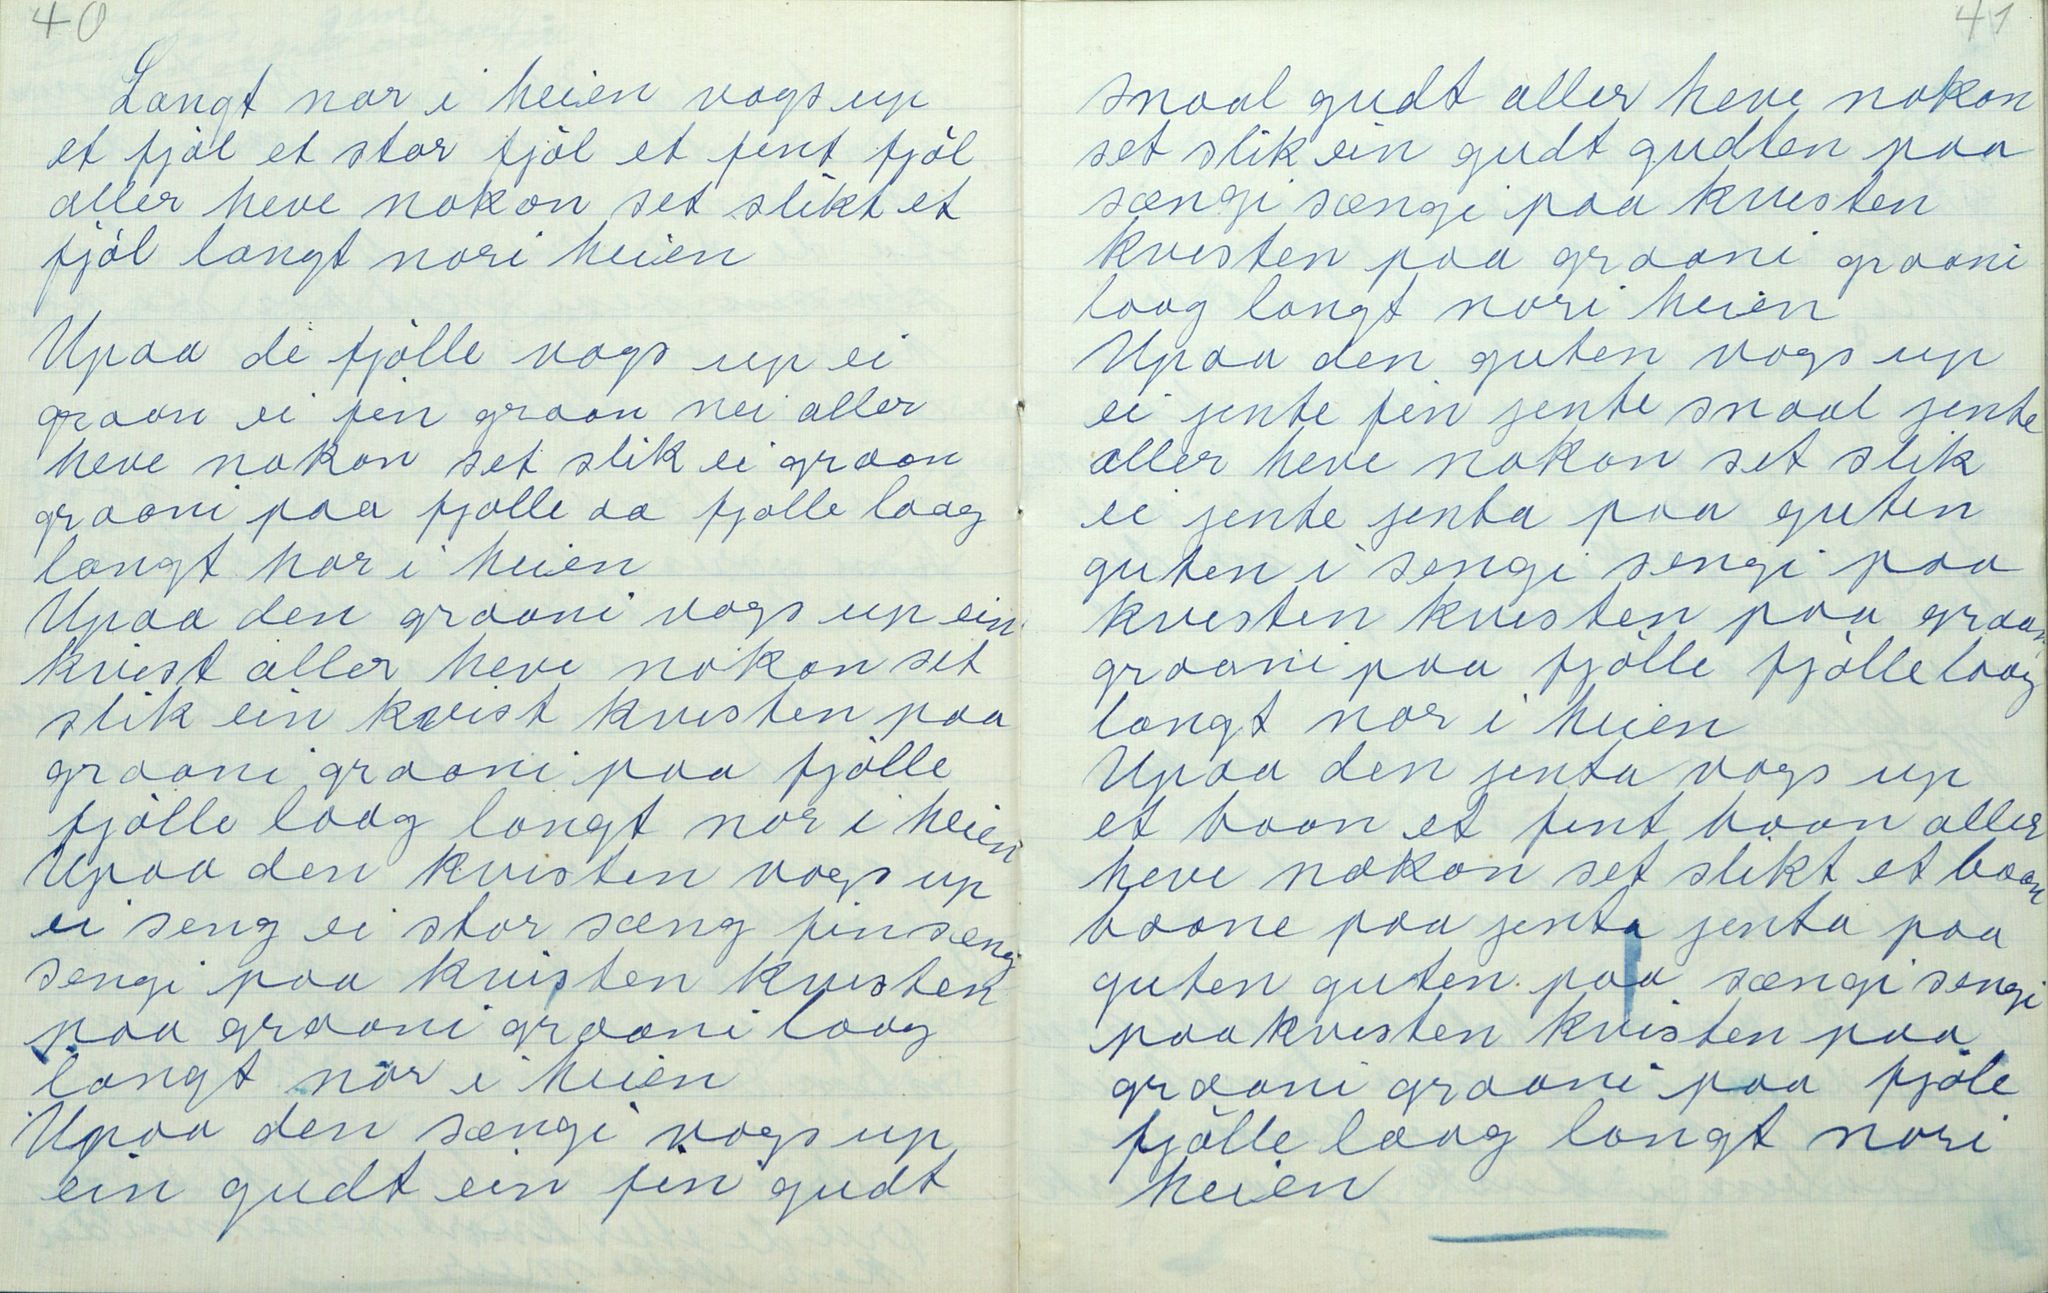 40
Langt nor i heien vogs up
et fjöl et stor fjöl et fint fjöl
aller heve nokon set slikt et
fjöl langt nor i heien
Upaa de fjölle vogs up ei
graan ei fin graan nei aller
heve nokon set slik ei graan
graani paa fjölle aa fjölle laag
langt nor i heien
Upaa den graani vogs up ein
kvist aller heve nokon set
slik ein kvist kvisten paa
graani graani paa fjölle
fjölle laag langt nor i heien
Upaa den kvisten vogs up
ei seng ei stor sæng fin sæng
sengi paa kvisten kvisten
paa graani graani laag
langt nor i heien
Upaa den sængi vogs up
ein gudt ein fin gudt
41
snaal gudt aller heve nokon
set slik ein gudt gudten paa
sængi sængi paa kvisten
kvisten paa graani graani
laag langt nor i heien
Upaa den guten vogs up
ei jente fin jente snaal jente
aller heve nokon set slik
ei jente jenta paa guten
guten i sengi sengi paa
kvisten kvisten paa graani
graani paa fjölle fjölle laag
langt nor i heien
Upaa den jenta vogs up
et baan et fint baan aller
heve nokon set slikt et baan
baane paa jenta jenta paa
guten guten paa sængi sengi
paa kvisten kvisten paa
graani graani paa fjöle
fjölle laag langt nor i
heien